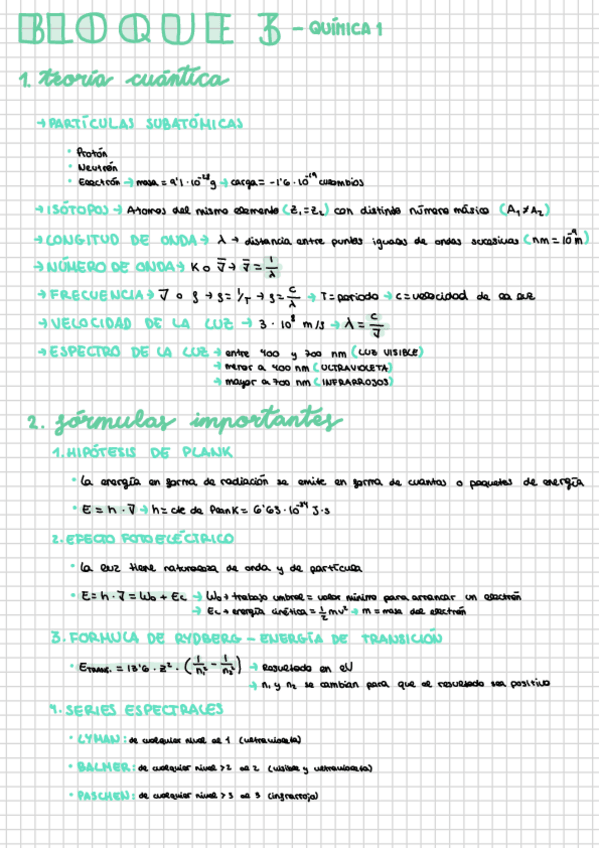 BLOQUE 3 - QUÍMICA 1
1. teoría cuántica
→ PARTÍCULAS SUBATÓMICAS
• Protón
• Neutrón
• Electrón → masa = 9'1 · 10^-28 g → carga = -1'6 · 10^-19 culombios
→ ISÓTOPOS → Átomos del mismo elemento (Z₁ = Z₂) con distinto número másico (A₁ ≠ A₂)
→ LONGITUD DE ONDA → λ → distancia entre puntos iguales de ondas sucesivas (nm = 10^-9 m)
→ NÚMERO DE ONDA → K o ν̄ → ν̄ = 1/λ
→ FRECUENCIA → ν o f → f = 1/T → f = c/λ → T = periodo → c = velocidad de la luz
→ VELOCIDAD DE LA LUZ → 3 · 10^8 m/s → λ = c/ν
→ ESPECTRO DE LA LUZ → entre 400 y 700 nm (LUZ VISIBLE)
→ menor a 400 nm (ULTRAVIOLETA)
→ mayor a 700 nm (INFRARROJOS)
2. fórmulas importantes
1. HIPÓTESIS DE PLANK
• La energía en forma de radiación se emite en forma de cuantos o paquetes de energía
• E = h · ν → h = cte de Plank = 6'63 · 10^-34 J·s
2. EFECTO FOTOELÉCTRICO
• La luz tiene naturaleza de onda y de partícula
• E = h · ν = W₀ + Ec → W₀ → trabajo umbral = valor mínimo para arrancar un electrón
→ Ec → energía cinética = 1/2 mv² → m = masa del electrón
3. FORMULA DE RYDBERG - ENERGÍA DE TRANSICIÓN
• E TRANS. = 13'6 · z² · (1/n₁² - 1/n₂²) → Resultado en eV
→ n₁ y n₂ se cambian para que el resultado sea positivo
4. SERIES ESPECTRALES
• LYMAN: de cualquier nivel al 1 (ultravioleta)
• BALMER: de cualquier nivel >2 al 2 (visible y ultravioleta)
• PASCHEN: de cualquier nivel >3 al 3 (infrarrojo)